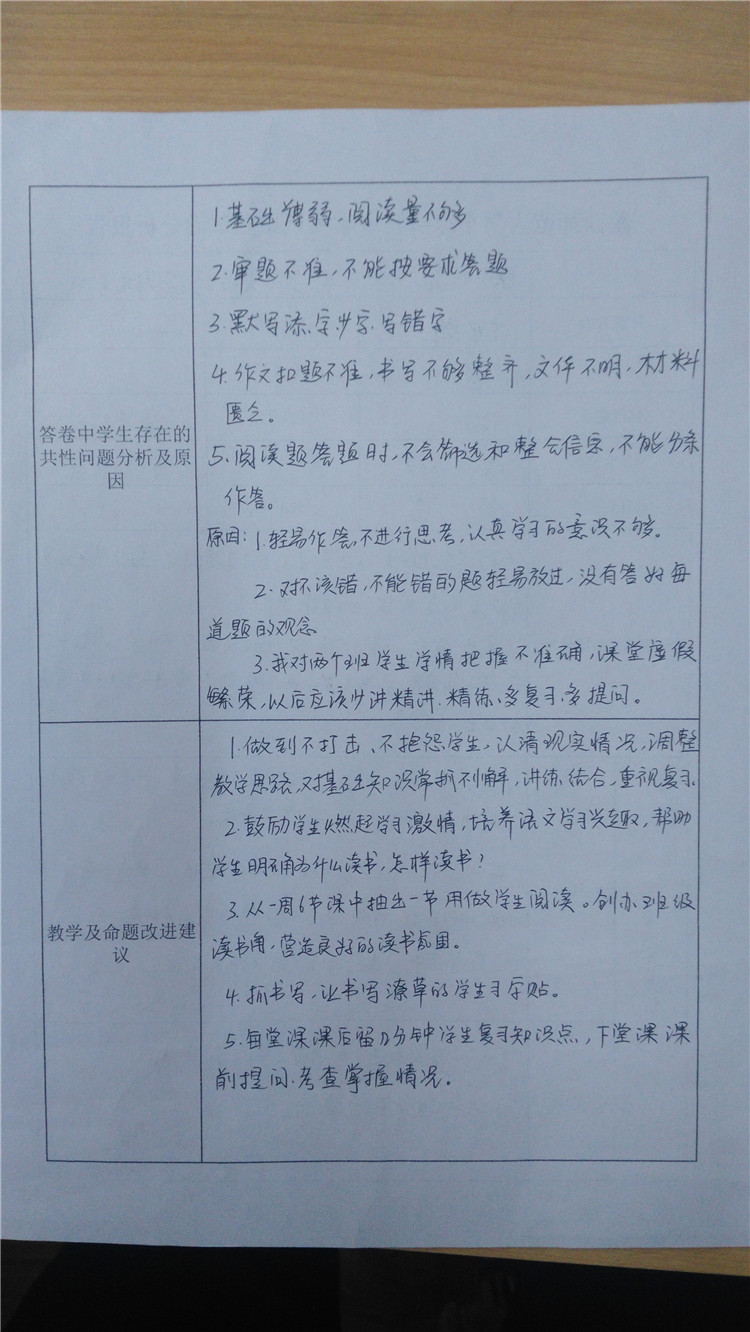 答卷中学生存在的
共性问题分析及原
因
1.基础薄弱、阅读量不够
2.审题不准,不能按要求答题
3.默写添字、少字、写错字
4.作文扣题不准,书写不够整齐,文体不明,材料
匮乏。
5.阅读题答题时,不会筛选和整合信息,不能分条
作答。
原因:1.轻易作答,不进行思考,认真学习的意识不够。
2.对不该错,不能错的题轻易放过,没有答好每
道题的观念
3.我对两个班学生学情把握不准确,课堂虚假
繁荣,以后应该少讲精讲.精练、多复习、多提问。
教学及命题改进建
议
1.做到不打击、不抱怨学生,认清现实情况,调整
教学思路,对基础知识常抓不懈,讲练结合,重视复习.
2.鼓励学生燃起学习激情,培养语文学习兴趣,帮助
学生明确为什么读书,怎样读书?
3.从一周6节课中抽出一节用做学生阅读。创办班级
读书角,营造良好的读书氛围。
4.抓书写,让书写潦草的学生习字贴。
5.每堂课课后留几分钟学生复习知识点,下堂课课
前提问.考查掌握情况。